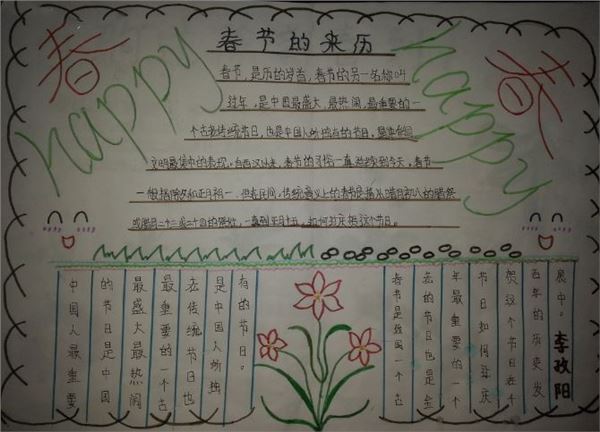 春节的来历
春
happy
happy
春
春节,是历的岁首,春节的另一名称叫
过年,是中国最盛大、最热闹、最重要的一
个古老传统节日,也是中国人所独有的节日。是
文明最集中的表现。自西汉以来,春节的习俗一直延续到今天。春节
一般指除夕和正月初一。但在民间,传统意义上的春节是指从腊月初八的腊祭
或腊月二十三或二十四的祭灶,一直到正月十五,如何过庆祝这个节日。
中国人最重要
的节日是中国
最盛大最热闹
最重要的一个古
老传统节日也
是中国人所独
有的节日。
春节是我国一个古
老的节日也是全
年最重要的一个
节日如何庆
贺这个节日在千
百年的历史发
展中。
李孜阳